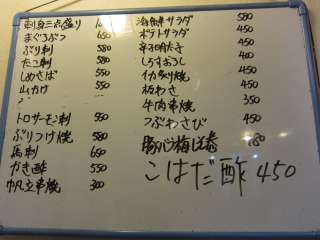 刺身三点盛り
まぐろぶつ 650
ぶり刺 580
たこ刺 580
しめさば 550
山かけ 550
トロサーモン刺 550
ぶりつけ焼 580
馬刺 650
かき酢 550
帆立串焼 300
海鮮サラダ 580
ポテトサラダ 400
辛子明太子 450
しらすおろし 400
イカ炙り焼 450
板わさ 450
牛肉串焼 350
つぶわさび 450
豚バラ梅しそ巻 180
こはだ酢 450